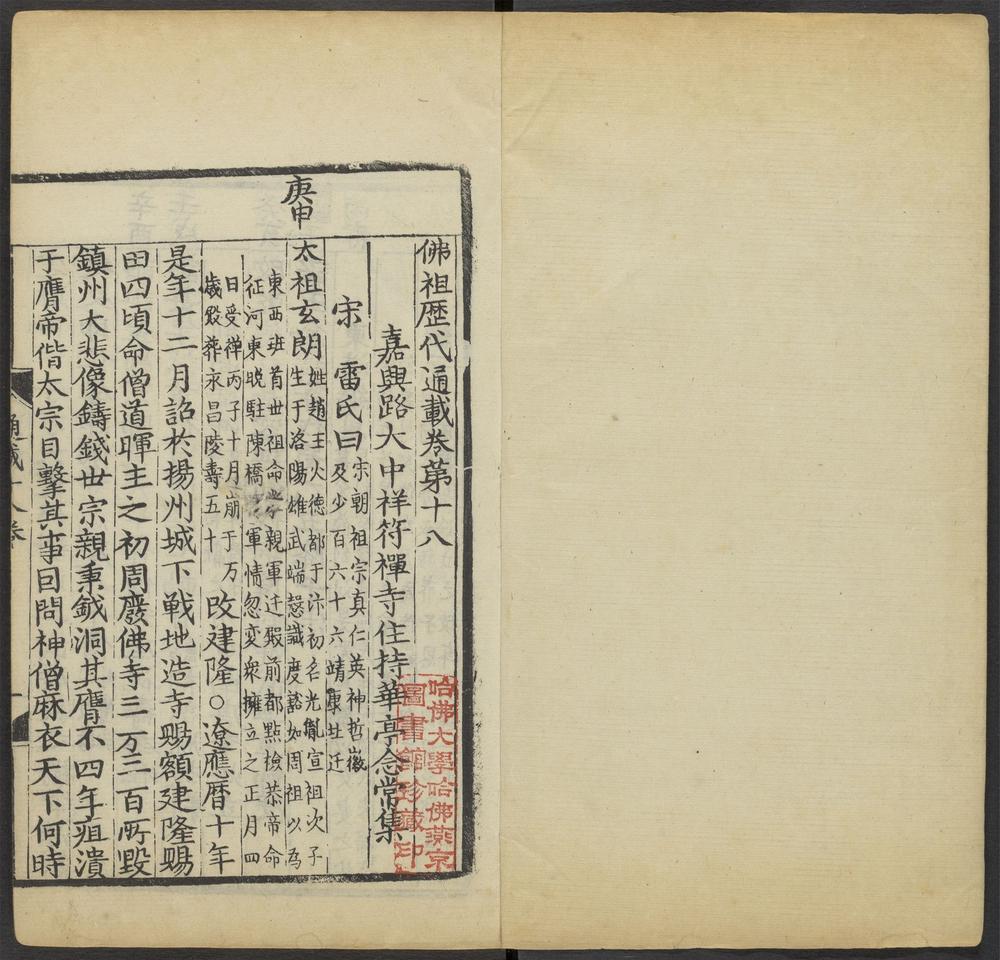 佛祖歷代通載卷第十八
嘉興路大中祥符禪寺住持華亭念常集
宋 雷氏曰宋朝祖宗真仁英神哲徽
及少百六十六靖康北迁
庚申
太祖玄朗姓趙王火德都于汴初名光胤宣祖次子
生于洛陽雄武端慤識度豁如周祖以為
東西班首世祖命掌親軍迁殿前都點檢恭帝命
征河東晚駐陳橋軍情忽变衆擁立之正月四
日受禅丙子十月崩于万
歲殿葬永昌陵壽五十
改建隆○遼應曆十年
是年十二月詔於揚州城下戰地造寺賜額建隆賜
田四頃命僧道暉主之初周廢佛寺三万三百所毀
鎮州大悲像鑄錢世宗親秉鉞洞其膺不四年疽潰
于膺帝偕太宗目擊其事囙問神僧麻衣天下何時
通載十八卷
哈佛大學哈佛燕京
圖書館珍藏印